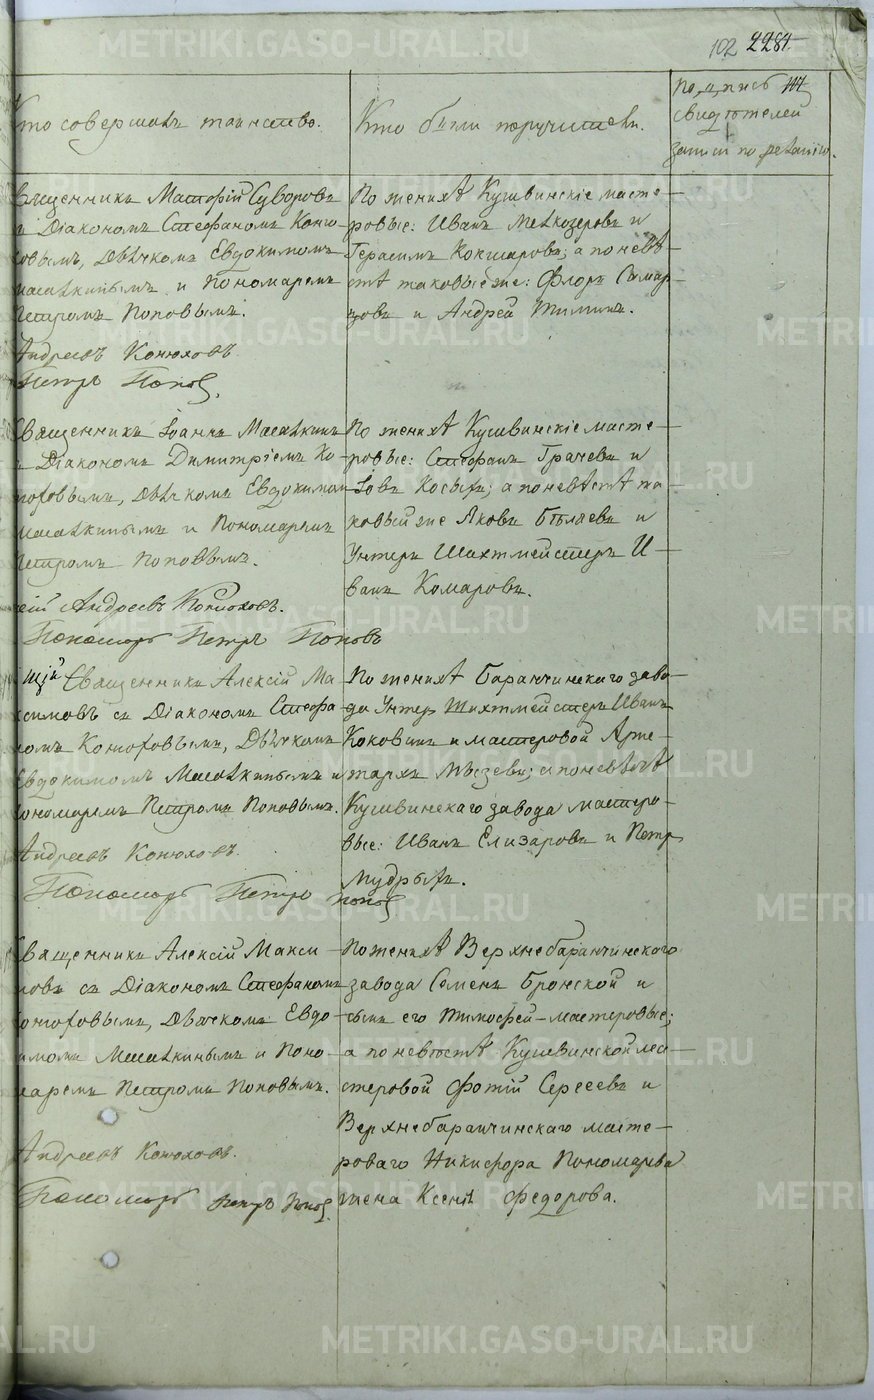 102 2281
Кто совершалъ таинство.
Кто были поручители.
Подпись
свидѣтелей
записи по желанію.
Священникъ Матѳій Суворовъ
съ Діакономъ Стефаномъ Коню-
ховымъ, Дьячкомъ Евдокимомъ
Масалкинымъ и Пономаремъ
Петромъ Поповымъ.
Андреевъ Конюховъ.
Петръ Поповъ.
По женихѣ Кушвинскіе масте-
ровые: Иванъ Мелкозеровъ и
Герасимъ Кокшаровъ; а по невѣ-
стѣ таковые же: Флоръ Самар-
цовъ и Андрей Тиминъ.
Священникъ Іоаннъ Масалкинъ
съ Діакономъ Димитріемъ Ко-
нюховымъ, Дьячкомъ Евдокимомъ
Масалкинымъ и Пономаремъ
Петромъ Поповымъ.
Андреевъ Конюховъ.
Пономарь Петръ Поповъ
По женихѣ Кушвинскіе масте-
ровые: Стефанъ Грачевъ и
Іовъ Косыхъ; а по невѣстѣ та-
ковый же Яковъ Бѣляевъ и
Унтеръ Шихтмейстеръ И-
ванъ Комаровъ.
щій Священникъ Алексій Ма-
ксимовъ съ Діакономъ Стефа-
номъ Конюховымъ, Дьячкомъ
Евдокимомъ Масалкинымъ и
Пономаремъ Петромъ Поповымъ.
Андреевъ Конюховъ.
Пономарь Петръ Поповъ
По женихѣ Баранчинскаго заво-
да Унтер Шихтмейстеръ Иванъ
Коковинъ и мастеровой Арте-
а по невѣстѣ
Кушвинскаго завода мастеро-
вые: Иванъ Елизаровъ и Петръ
Мудрыхъ.
Священникъ Алексій Макси-
мовъ съ Діакономъ Стефаномъ
Конюховымъ, Дьячкомъ Евдо-
кимомъ Масалкинымъ и Поно-
маремъ Петромъ Поповымъ.
Андреевъ Конюховъ.
Пономарь Петръ Поповъ.
По женихѣ Верхнебаранчинскаго
завода Семенъ Бронской и
сынъ его Тимофей – мастеровые;
а по невѣстѣ Кушвинской ма-
стеровой Фотій Сергеевъ и
Верхнебаранчинскаго масте-
роваго Никифора Пономарева
жена Ксенія Федорова.
METRIKI.GASO-URAL.RU